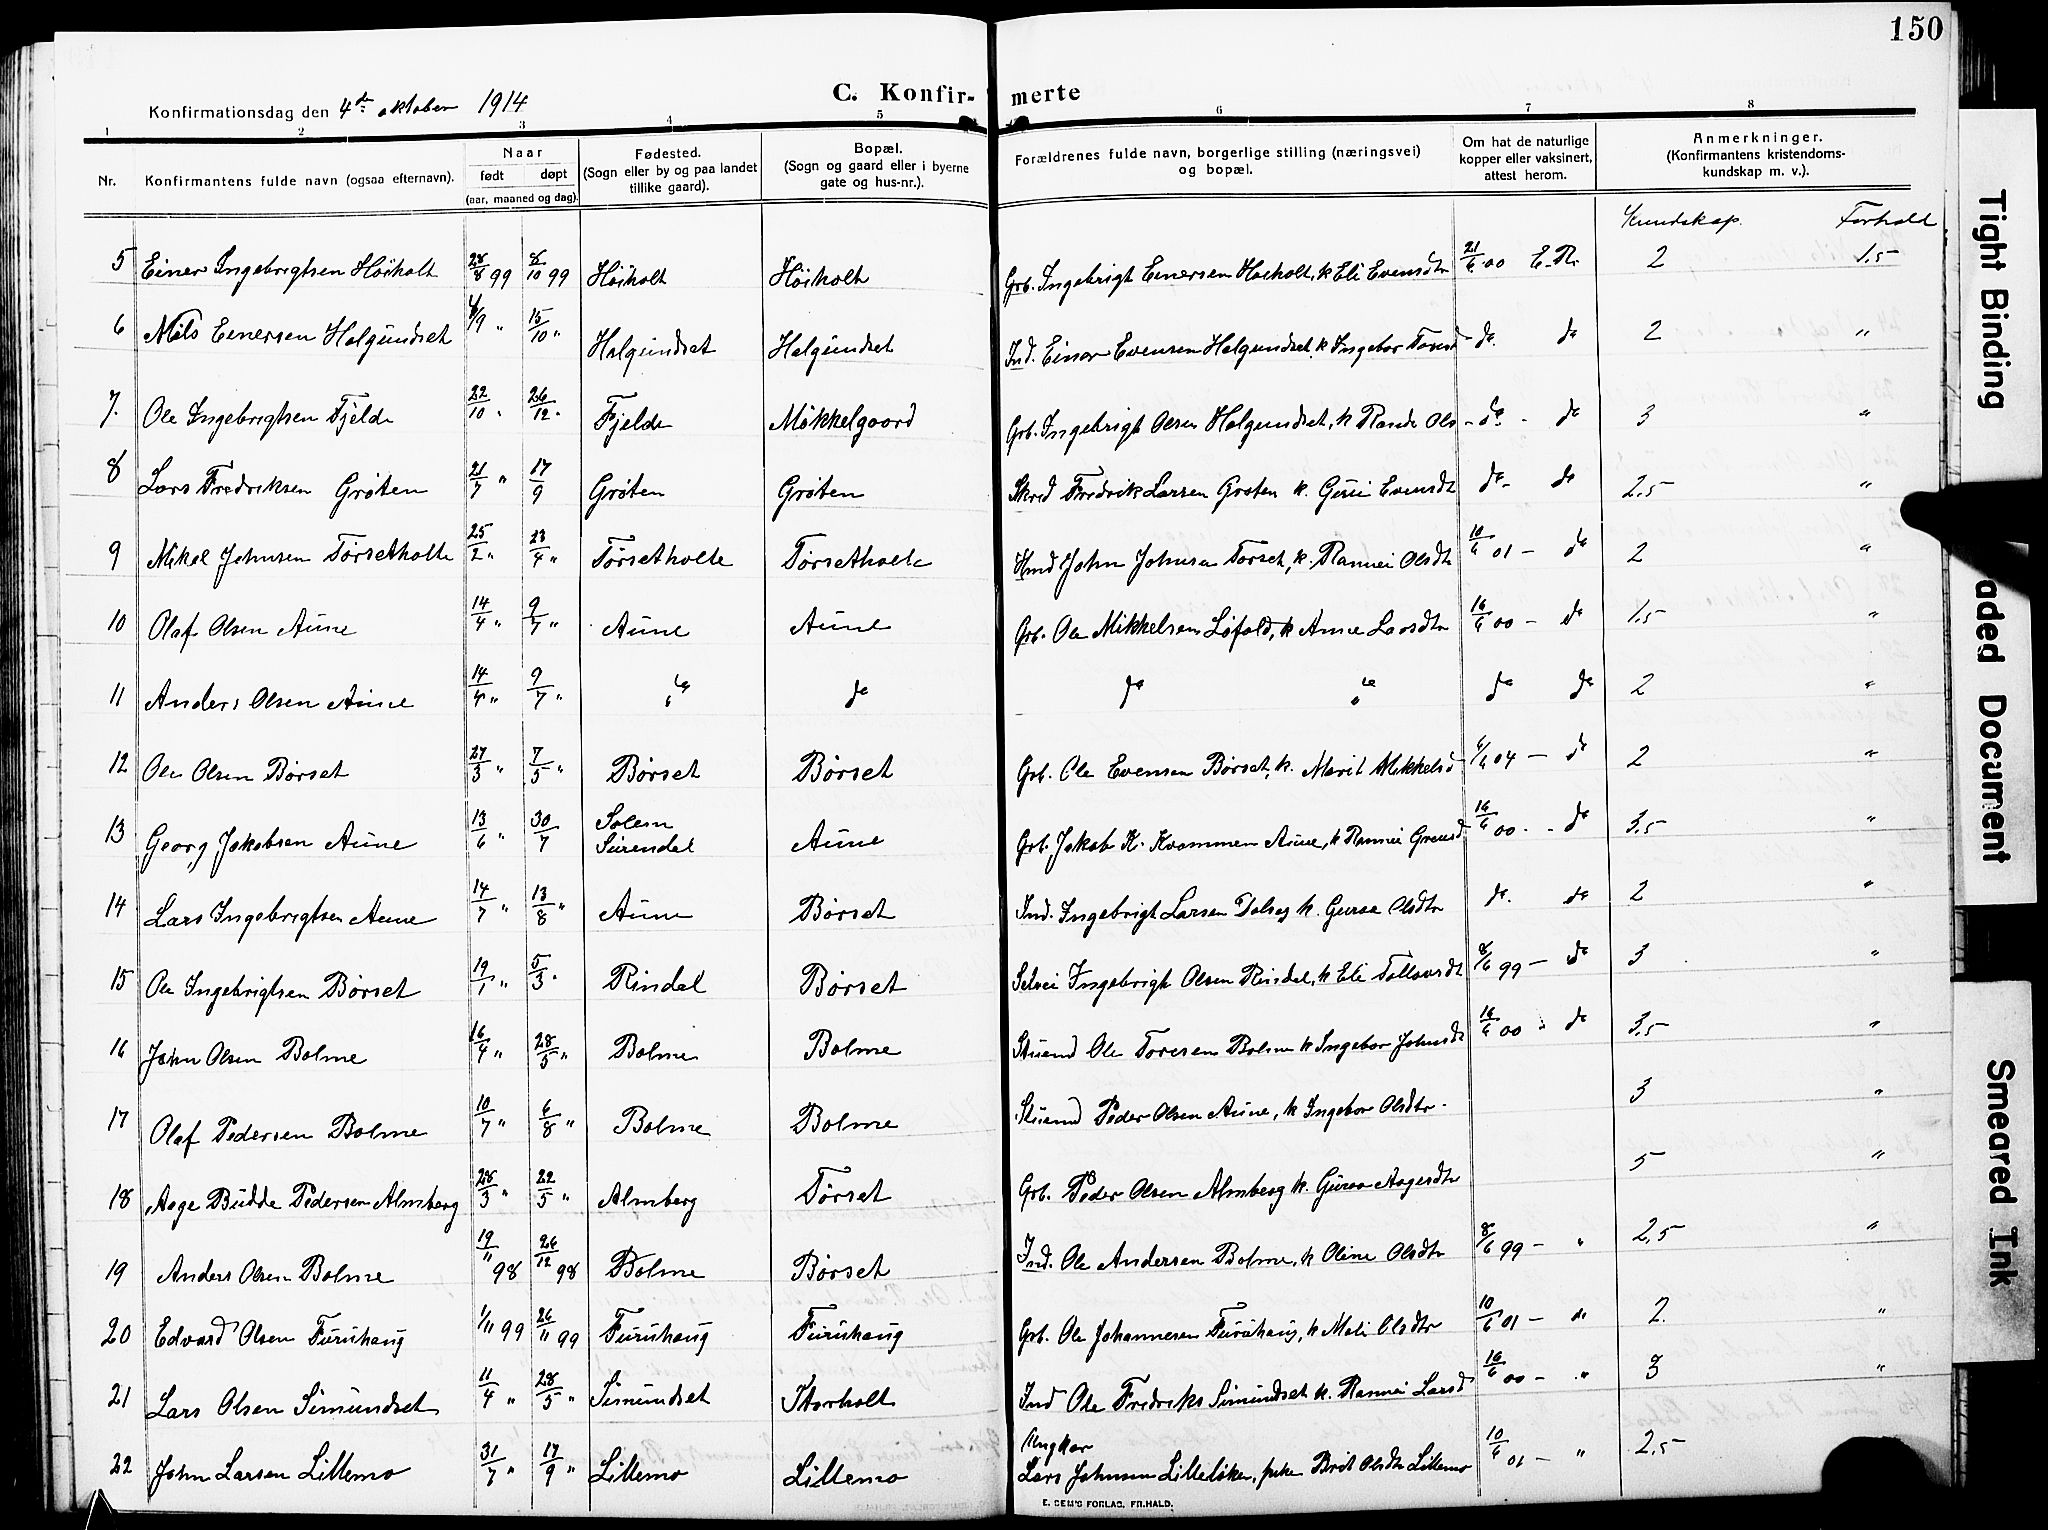 150
Konfirmationsdag den 4de oktober 1914
C. Konfir- merte
1 2 3 4 5 6 7 8
Nr. Konfirmantens fulde navn (ogsaa efternavn). Naar født døpt (aar, maaned og dag). Fødested. (Sogn eller by og paa landet tillike gaard). Bopæl. (Sogn og gaard eller i byerne gate og hus-nr.). Forældrenes fulde navn, borgerlige stilling (næringsvei) og bopæl. Om hat de naturlige kopper eller vaksinert, attest herom. Anmerkninger. (Konfirmantens kristendoms-kundskap m. v.).
Kundskap. Forhold
5 Einar Ingebrigtsen Höiholt 28/8 99 8/10 99 Höiholt Höiholt Grb. Ingebrigt Einersen Höiholt, k Eli Evensdtr 21/6 00 E. R. 2 1.5
6 Nils Einersen Halgundset 4/9 " 15/10 " Halgundset Halgundset Ind. Einar Evensen Halgundset, k Ingebor - do. do 2 "
7. Ole Ingebrigtsen Fjelde 22/10 " 26/12 " Fjelde Mikkelgaard Grb. Ingebrigt Olsen Halgundset, k Rande Ols - do - do 3 "
8 Lars Fredriksen Gröten 21/7 " 17/9 Gröten Gröten Fredrik Larsen Gröten k. Guri Evensdtr do - do 2.5 "
9 Mikal Johnsen Törsetholte 25/2 " 23/4 " Törsetholte Törsetholte John Johnsen Törset, k. Rannei Olsdtr 10/6 01 - do 2 "
10 Olaf Olsen Aune 14/4 " 9/7 " Aune Aune Grb. Ole Mikkelsen Löfald, k Anne Larsdtr 16/6 00 - do 1.5 "
11 Anders Olsen Aune 14/4 " 9/7 " do do do do do do 2 "
12 Ole Olsen Börset 27/3 " 7/5 " Börset Börset Grb. Ole Evensen Börset, k. Marit Mikkelsd 04 - do 2 "
13 Georg Jakobsen Aune 13/6 " 30/7 Solem Surendal Aune Grb. Jakob K. Kvammen Aune, k Rannei 16/6 00 - do 3.5 "
14 Lars Ingebrigtsen Aune 14/7 " 13/8 " Aune Börset Ind. Ingebrigt Larsen k. Guroe Olsdtr do. do 2 "
15 Ole Ingebrigtsen Börset 19/1 " 5/3 " Rindal Börset Selvei Ingebrigt Olsen Rindal, k Eli 8/6 99 - do 3 "
16 John Olsen Bolme 16/4 " 28/5 " Bolme Bolme Stuemd Ole Toresen Bolme k Ingebor Johnsdt 16/6 00 - do 3.5 "
17 Olaf Pedersen Bolme 10/7 " 6/8 " Bolme Bolme Stuemd Peder Olsen Aune, k Ingebor Olsdtr. 3 "
18 Aage Budde Pedersen Almberg 28/3 " 22/5 " Almberg Törset Grb. Peder Olsen Almberg k. Guroe Aagesdtr 5 "
19 Anders Olsen Bolme 19/11 98 26/12 98 Bolme Börset Ind. Ole Andersen Bolme, k Oline Olsdtr 8/6 99 - " 2.5 "
20 Edvard Olsen Furuhaug 1/11 99 26/11 99 Furuhaug Furuhaug Grb. Ole Johannesen Furuhaug, k Mali Olsdtr 10/6 01 - " 2. "
21 Lars Olsen Simundset 11/4 " 28/5 " Simundset Storholt Ind Ole Fredriks Simundset k. Rannei Larsd 16/6 00 - " 3 "
22 John Larsen Lillemo 31/7 " 17/9 " Lillemo Lillemo Ungkar Lars Johnsen Lilleløken, pike Brit Olsdtr Lillemo 10/6 01 - " 2.5
E. SEM'S FORLAG, FR.HALD.
Tight Binding
aded Document
Smeared Ink